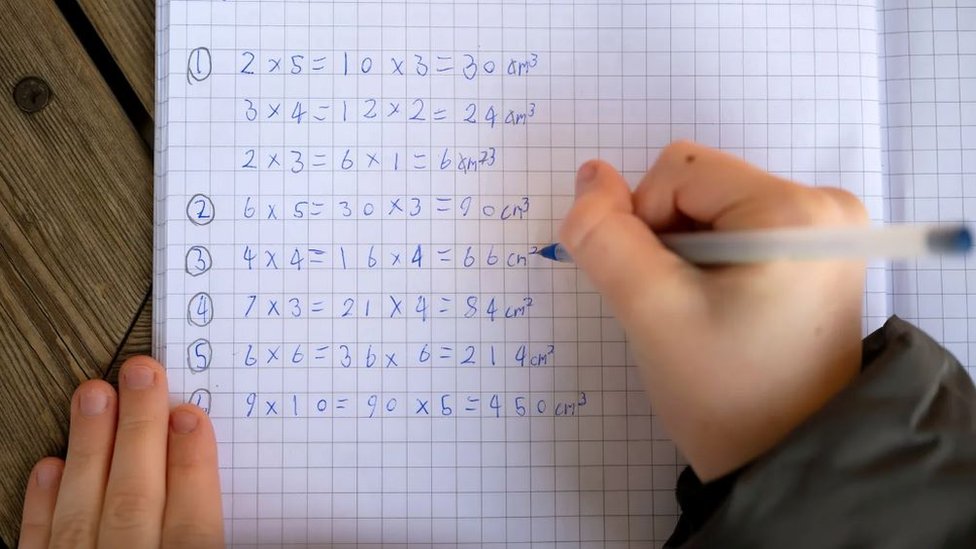 ① 2 × 5 = 10 × 3 = 30 cm³
3 × 4 = 12 × 2 = 24 cm³
2 × 3 = 6 × 1 = 6 cm³
② 6 × 5 = 30 × 3 = 90 cm³
③ 4 × 4 = 16 × 4 = 66 cm²
④ 7 × 3 = 21 × 4 = 84 cm²
⑤ 6 × 6 = 36 × 6 = 214 cm²
9 × 10 = 90 × 5 = 450 cm³